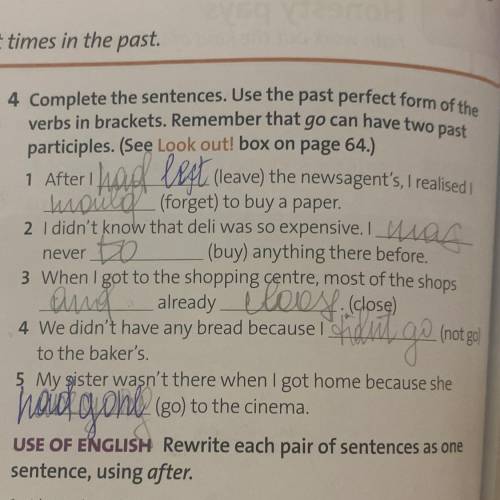 t times in the past.
4 Complete the sentences. Use the past perfect form of the
verbs in brackets. Remember that go can have two past
participles. (See Look out! box on page 64.)
1 After I had left (leave) the newsagent's, I realised I
would (forget) to buy a paper.
2 I didn't know that deli was so expensive. I was
never to (buy) anything there before.
3 When I got to the shopping centre, most of the shops
and already (close)
4 We didn't have any bread because I didn't go (not go)
to the baker's.
5 My sister wasn't there when I got home because she
had gone (go) to the cinema.
USE OF ENGLISH Rewrite each pair of sentences as one
sentence, using after.